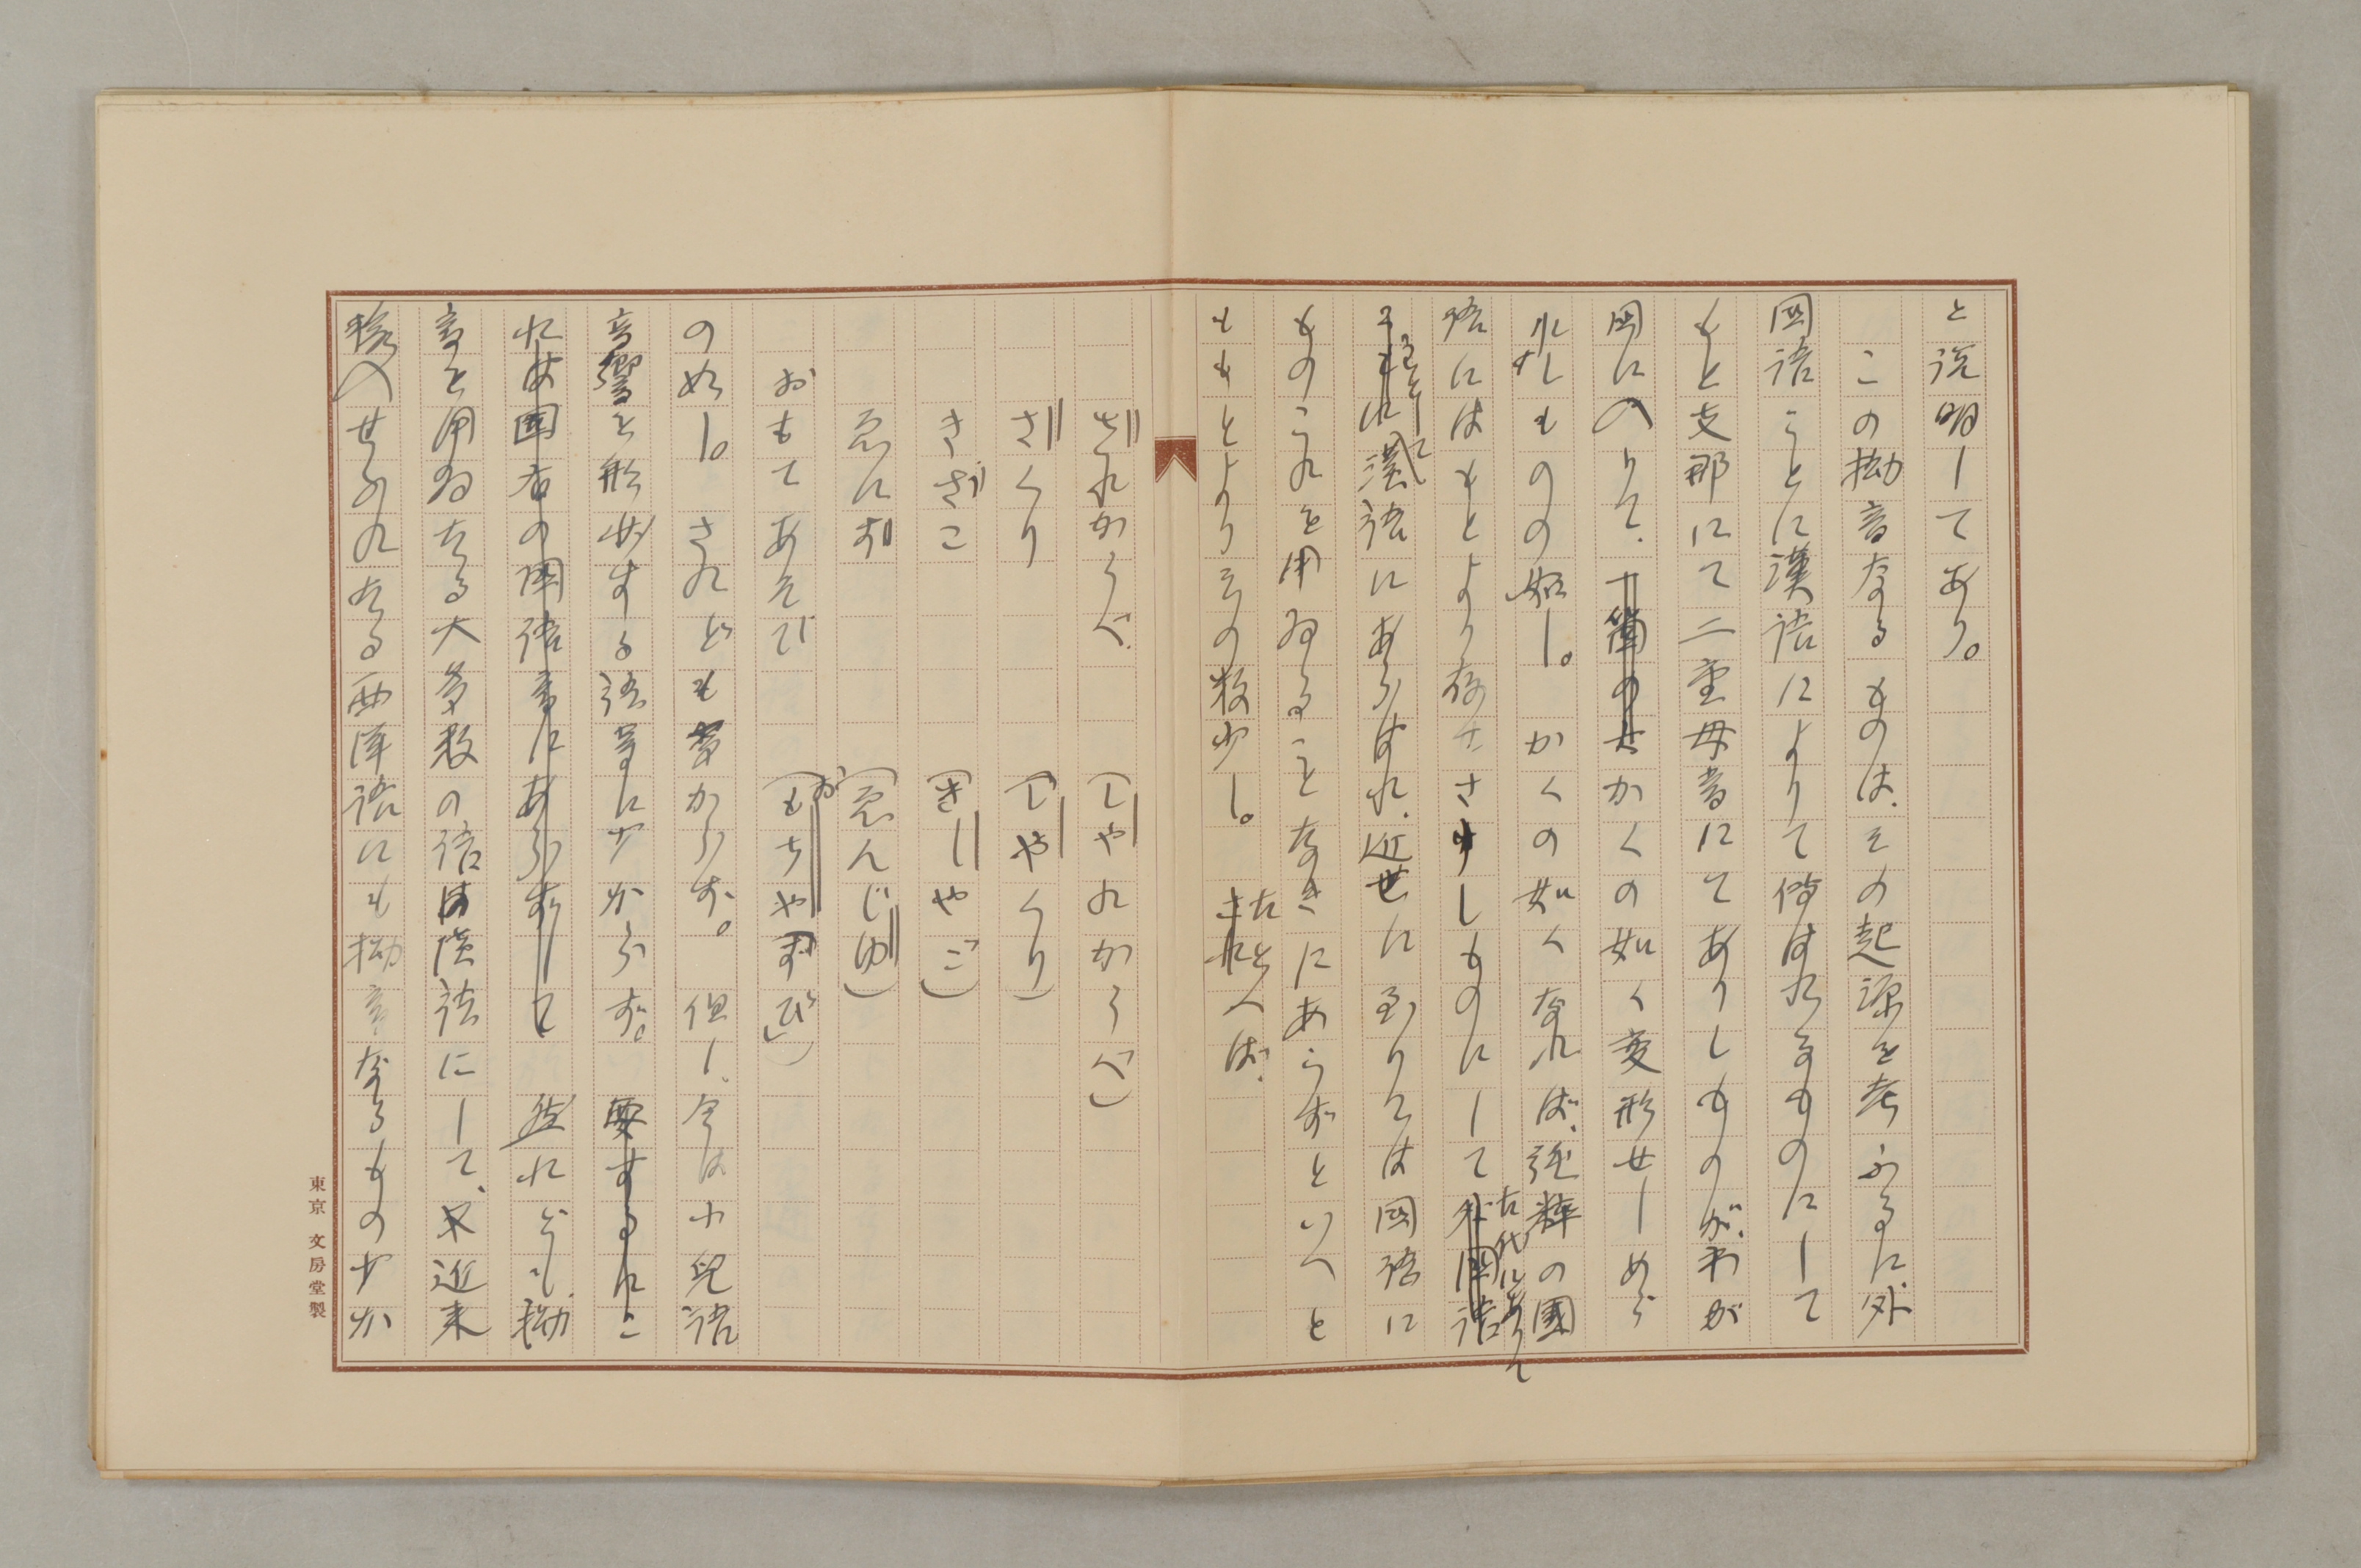 と説明してあり。
この拗音なるものは、その起源を考ふるに、外
国語ことに漢語によりて傳はれるものにして
もと支那にて二重母音にてありしものが、わが
国に入りて、かくの如く変形せしめら
れしものの如し。かくの如くなれば、純粋の國
語にはもとより存せざりしものにして古代にありて
主として漢語にあらはれ、近世に至りては國語に
ものこれを用ゐることなきにあらずといへと
ももとよりその数少し。たとへば、
ざれかうべ（しやれかうべ）
ざくり（じやくり）
きざこ（きしやご）
ゑにす（ゑんじゆ）
おもてあそび（おもちやすび）
の如し。されども多からず。但し、今は小児語
音響を形容する語等に少からず。要するにこ
れは国有の國語音にあらずして然れども、拗
音を用ゐたる大多数の語は漢語にして、又近来
輸入せられたる西洋語にも拗音なるもの少か
東京 文房堂製